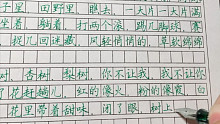 子里，田野里，瞧去，一大片一大片满
坐着，躺着，打两个滚，踢几脚球，赛
捉几回迷藏。风轻悄悄的，草软绵绵
树、杏树、梨树，你不让我，我不让你
了花赶趟儿。红的像火，粉的像霞，白
花里带着甜味，闭了眼，树上